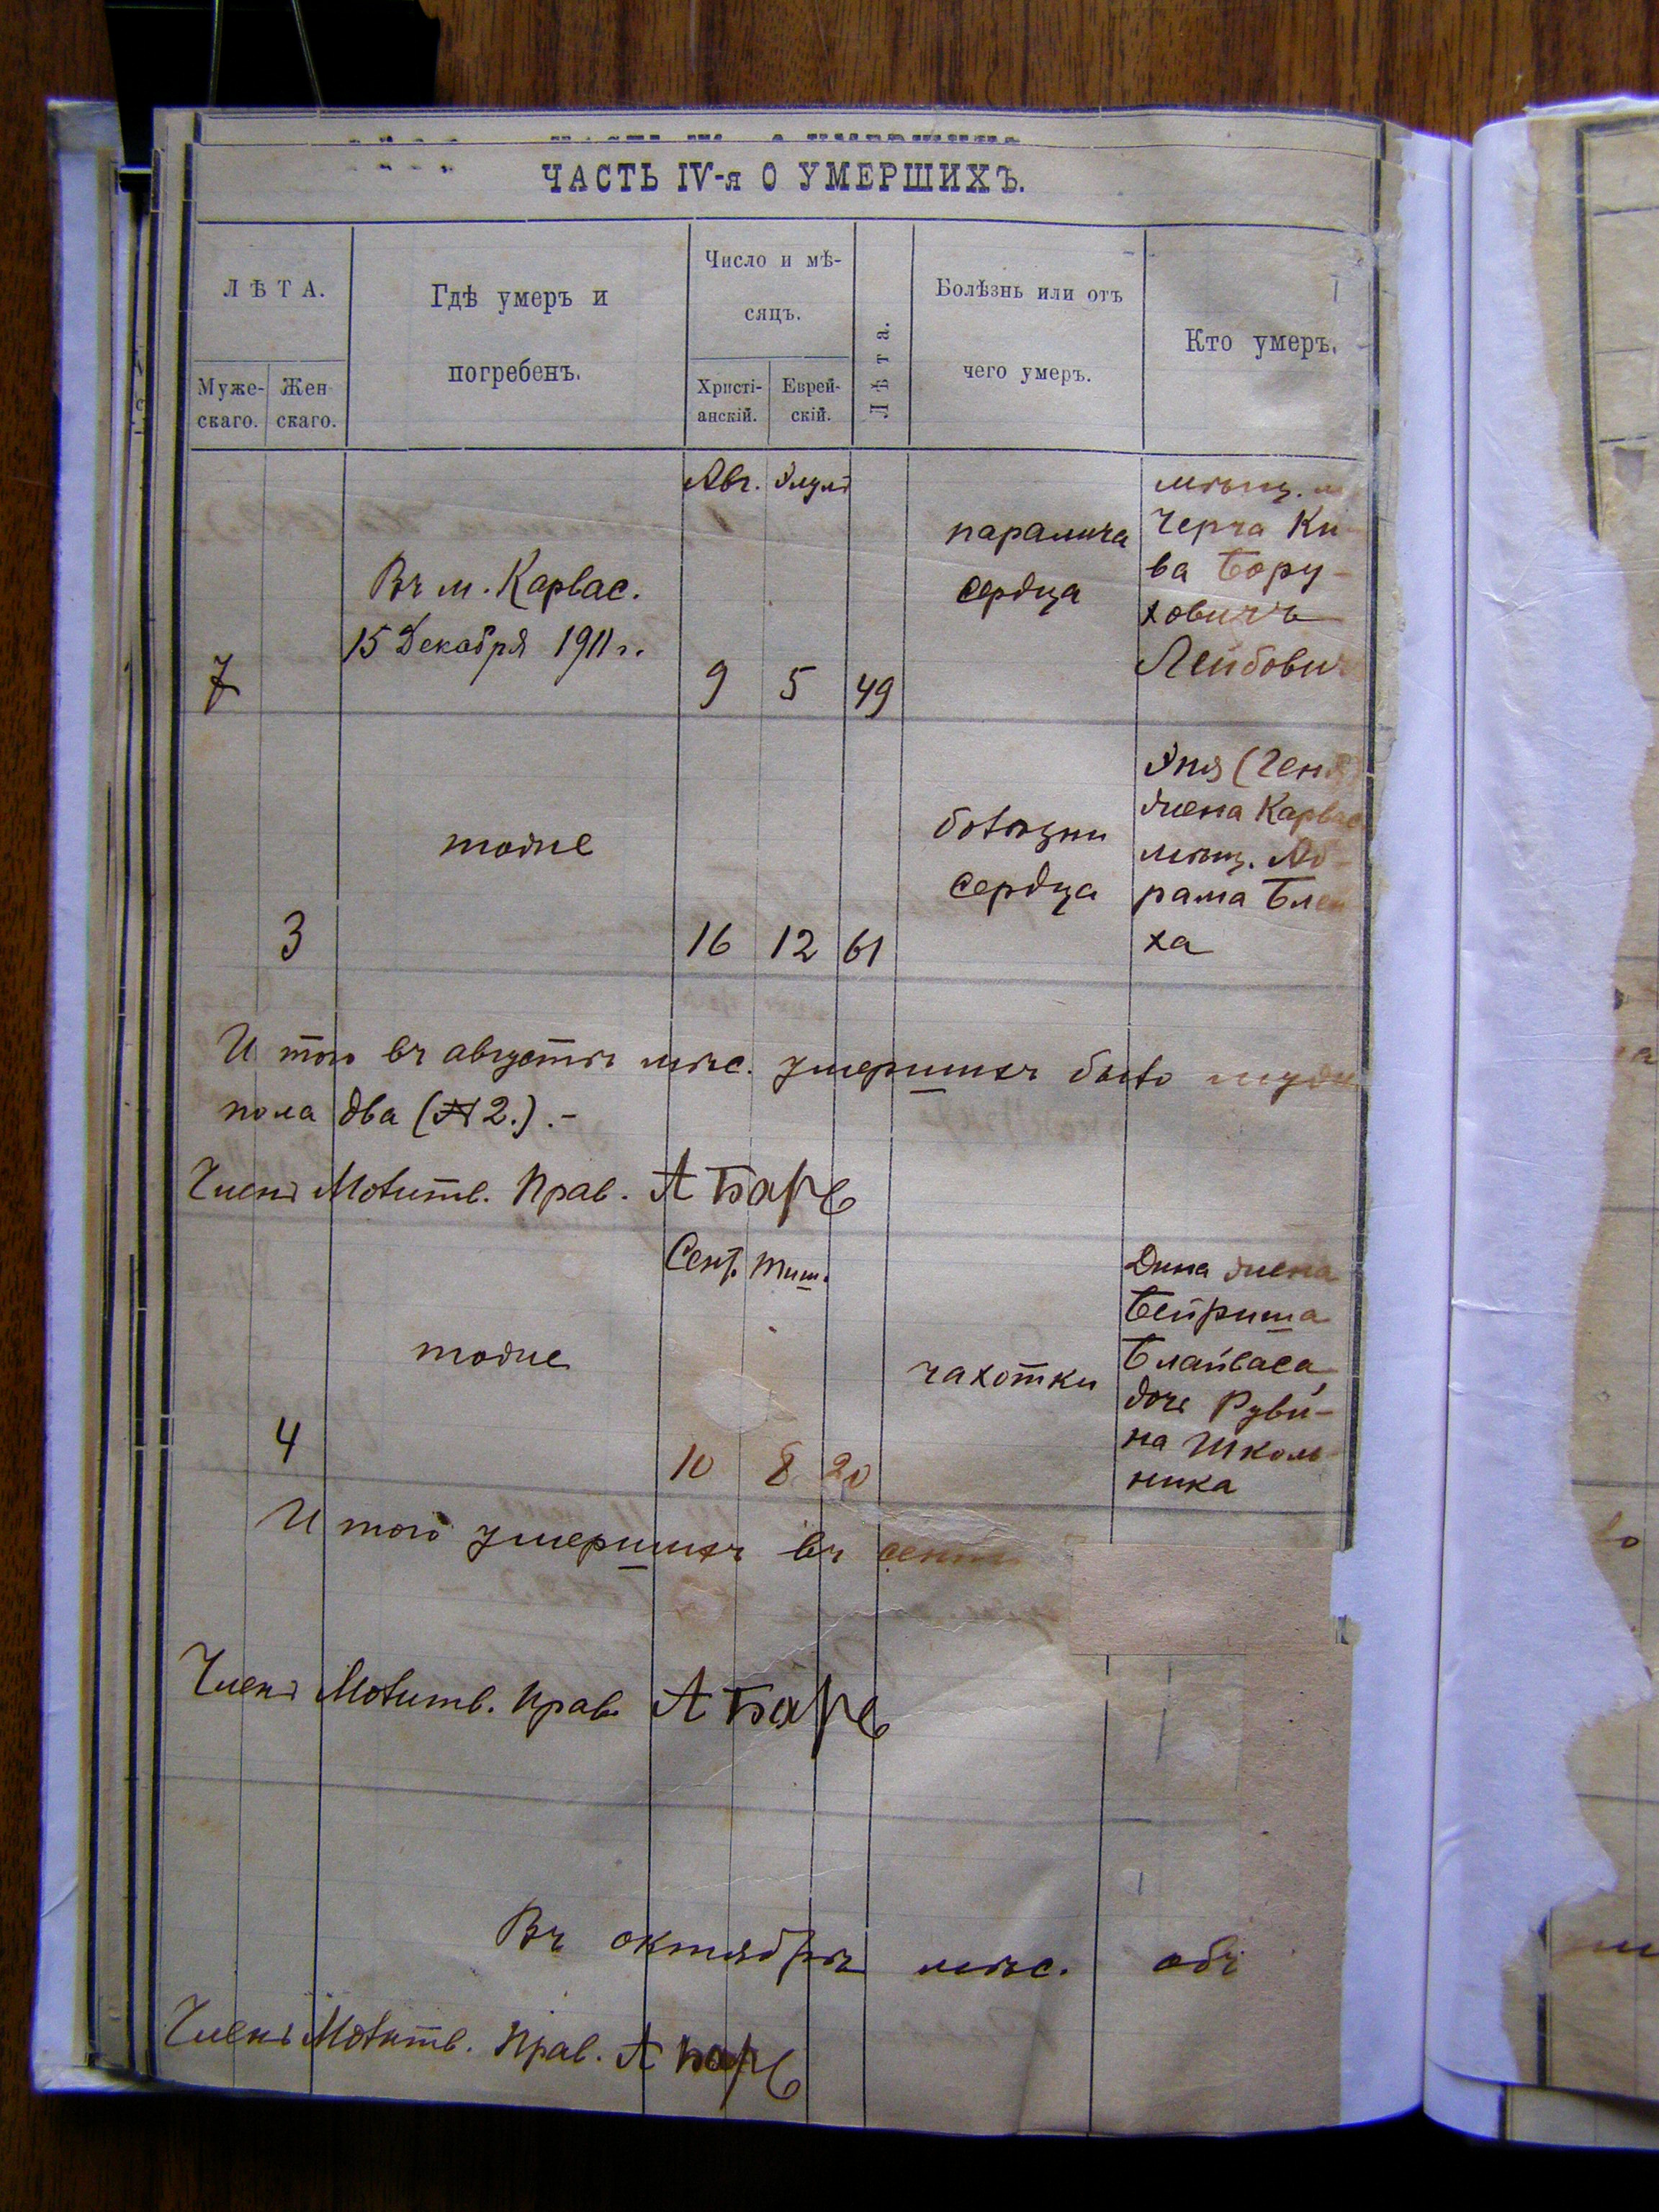 ЧАСТЬ IV-я О УМЕРШИХЪ.
ЛѢТА.
Муже-
скаго.
Жен
скаго.
Гдѣ умеръ и
погребенъ.
Число и мѣ-
сяцъ.
Христі-
анскій.
Еврей-
скій.
Лѣта.
Болѣзнь или отъ
чего умеръ.
Кто умеръ.
Авг. Элулъ
7
Въ м. Карвас.
15 Декабря 1911 г.
9 5 49
паралича
сердца
мѣщ.
Черча Ки-
ва Бору-
ховичъ
Лейбович
3
тоже
16 12 61
болѣзни
сердца
Эня (Геня
жена Карвас
мѣщ. Аб-
рама Блей
ха
И того въ августѣ мѣс. умершихъ было
пола два (№ 2.).-
Членъ Молитв. Прав. А Баръ
Сент. Тиш.
4
тоже
10 8 20
чахотки
Дина жена
Бейриша
Блайваса,
дочь Руви-
на Школь
ника
И того умершихъ въ сент
Членъ Молитв. Прав. А Баръ
Въ октябрѣ мѣс. объ
Членъ Молитв. Прав. А Баръ